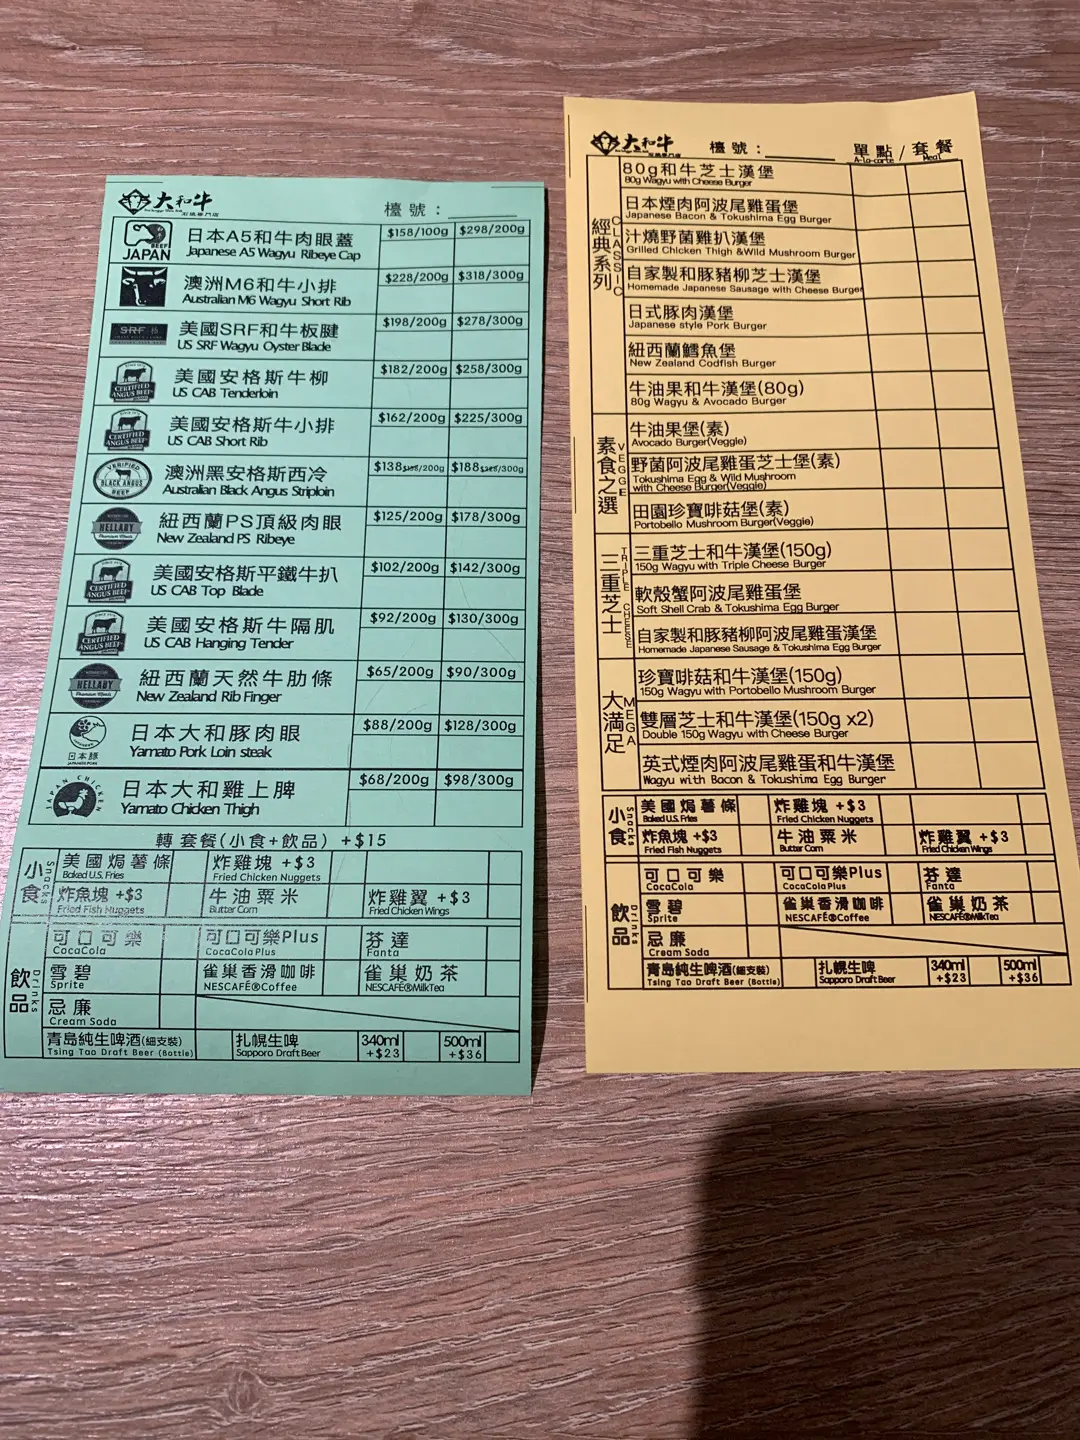 大和牛
石燒專門店
檯號：
BEEF
JAPAN
日本A5和牛肉眼蓋
Japanese A5 Wagyu Ribeye Cap
$158/100g
$298/200g
澳洲M6和牛小排
Australian M6 Wagyu Short Rib
$228/200g
$318/300g
SRF
美國SRF和牛板腱
US SRF Wagyu Oyster Blade
$198/200g
$278/300g
CERTIFIED
ANGUS BEEF
美國安格斯牛柳
US CAB Tenderloin
$182/200g
$258/300g
CERTIFIED
ANGUS BEEF
美國安格斯牛小排
US CAB Short Rib
$162/200g
$225/300g
VERIFIED
BLACK ANGUS
BEEF
澳洲黑安格斯西冷
Australian Black Angus Striploin
$138 /200g
$188 /300g
HELLABY
Premium Meats
紐西蘭PS頂級肉眼
New Zealand PS Ribeye
$125/200g
$178/300g
CERTIFIED
ANGUS BEEF
美國安格斯平鐵牛扒
US CAB Top Blade
$102/200g
$142/300g
CERTIFIED
ANGUS BEEF
美國安格斯牛隔肌
US CAB Hanging Tender
$92/200g
$130/300g
HELLABY
Premium Meats
紐西蘭天然牛肋條
New Zealand Rib Finger
$65/200g
$90/300g
日本豚
JAPANESE PORK
日本大和豚肉眼
Yamato Pork Loin steak
$88/200g
$128/300g
JAPAN CHICKEN
日本大和雞上脾
Yamato Chicken Thigh
$68/200g
$98/300g
轉 套餐(小食+飲品) +$15
小食
Snacks
美國焗薯條
Baked U.S. Fries
炸雞塊 +$3
Fried Chicken Nuggets
炸魚塊 +$3
Fried Fish Nuggets
牛油粟米
Butter Corn
炸雞翼 +$3
Fried Chicken Wings
飲品
Drinks
可口可樂
CocaCola
可口可樂Plus
CocaCola Plus
芬達
Fanta
雪碧
Sprite
雀巢香滑咖啡
NESCAFÉ®Coffee
雀巢奶茶
NESCAFÉ®MilkTea
忌廉
Cream Soda
青島純生啤酒(細支裝)
Tsing Tao Draft Beer (Bottle)
扎幌生啤
Sapporo Draft Beer
340ml
+$23
500ml
+$36
大和牛
石燒專門店
檯號：
單點 / 套餐
A-la-carte
Meal
經典系列
CLASSIC
80g和牛芝士漢堡
80g Wagyu with Cheese Burger
日本煙肉阿波尾雞蛋堡
Japanese Bacon & Tokushima Egg Burger
汁燒野菌雞扒漢堡
Grilled Chicken Thigh &Wild Mushroom Burger
自家製和豚豬柳芝士漢堡
Homemade Japanese Sausage with Cheese Burger
日式豚肉漢堡
Japanese style Pork Burger
紐西蘭鱈魚堡
New Zealand Codfish Burger
牛油果和牛漢堡(80g)
80g Wagyu & Avocado Burger
素食之選
VEGGE
牛油果堡(素)
Avocado Burger(Veggie)
野菌阿波尾雞蛋芝士堡(素)
Tokushima Egg & Wild Mushroom
with Cheese Burger(Veggie)
田園珍寶啡菇堡(素)
Portobello Mushroom Burger(Veggie)
三重芝士
TRIPLE CHEESE
三重芝士和牛漢堡(150g)
150g Wagyu with Triple Cheese Burger
軟殼蟹阿波尾雞蛋堡
Soft Shell Crab & Tokushima Egg Burger
自家製和豚豬柳阿波尾雞蛋漢堡
Homemade Japanese Sausage & Tokushima Egg Burger
大滿足
MEGA
珍寶啡菇和牛漢堡(150g)
150g Wagyu with Portobello Mushroom Burger
雙層芝士和牛漢堡(150g x2)
Double 150g Wagyu with Cheese Burger
英式煙肉阿波尾雞蛋和牛漢堡
Wagyu with Bacon & Tokushima Egg Burger
小食
Snacks
美國焗薯條
Baked U.S. Fries
炸雞塊 +$3
Fried Chicken Nuggets
炸魚塊 +$3
Fried Fish Nuggets
牛油粟米
Butter Corn
炸雞翼 +$3
Fried Chicken Wings
飲品
Drinks
可口可樂
CocaCola
可口可樂Plus
CocaCola Plus
芬達
Fanta
雪碧
Sprite
雀巢香滑咖啡
NESCAFÉ®Coffee
雀巢奶茶
NESCAFÉ®MilkTea
忌廉
Cream Soda
青島純生啤酒(細支裝)
Tsing Tao Draft Beer (Bottle)
扎幌生啤
Sapporo Draft Beer
340ml
+$23
500ml
+$36